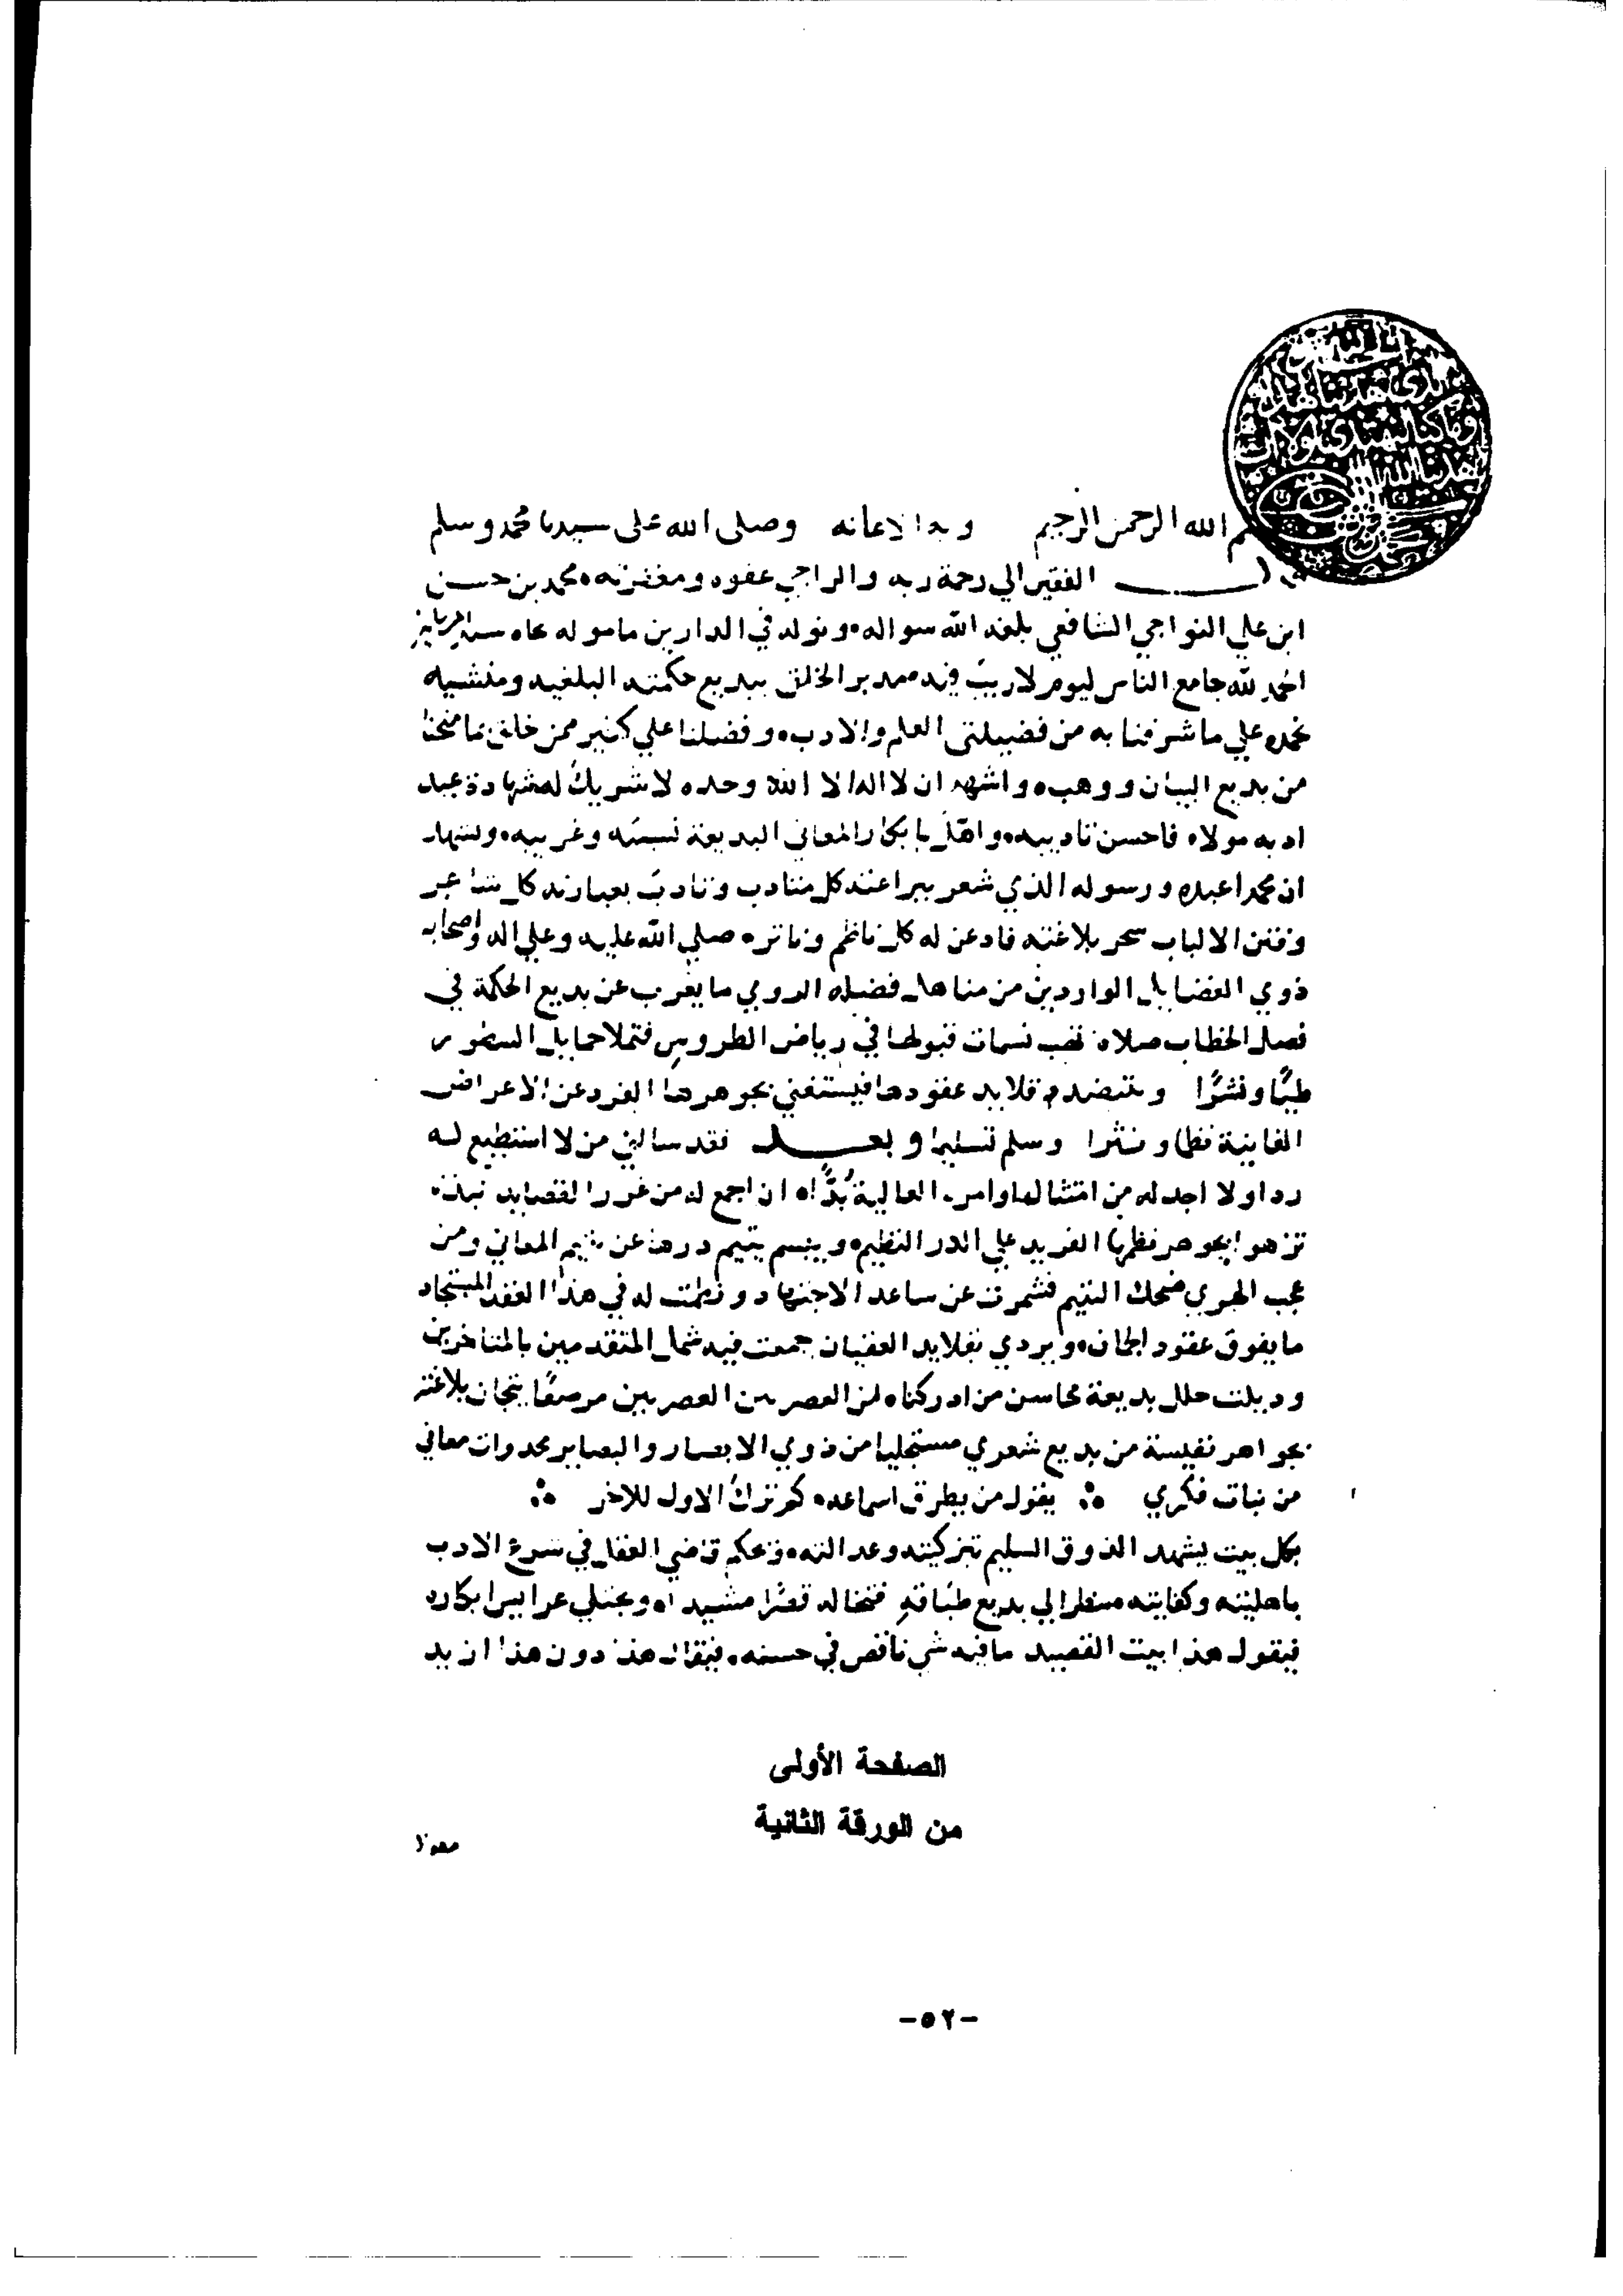 الحمد لله
الذي هدينا لهذا
وما كنا لنهتدي لولا ان
هدينا الله
الله الرحمن الرحيم وبه الاعانه وصلى الله على سيدنا محمد وسلم
الفقير الي رحمة ربه والراجي عفوه ومغفرته محمد بن حسن
ابن علي النواجي الشافعي بلغه الله سواله ونوله في الدارين ماموله بجاه سيد
الحمد لله جامع الناس ليوم لاريب فيه مدبر الخلق ببديع حكمته البلغيه ومنشيه
نحمده علي ما شرفنا به من فضيلتي العلم والادب وفضلنا علي كثير ممن خلق بما منحنا
من بديع البيان ووهب واشهد ان لا اله الا الله وحده لا شريك له شهادة عبد
ادبه مولاه فاحسن تاديبه واهل بابكار المعاني البديعة نسيبه وغريبه ونشهد
ان محمدا عبده ورسوله الذي شعر ببراعته كل متادب وتادب بعبارته كل شاعر
وفتن الالباب سحر بلاغته فاذعن له كل ناظم وناثره صلي الله عليه وعلي اله واصحابه
ذوي الفضايل الواردين من مناهل فضله الروي ما يعرب عن بديع الحكمة في
فصل الخطاب صلاة تهب نسمات قبولها في رياض الطروس فتملا خمايل السطور
طيًّا ونشرًا وتنتضد قلايد عقودها فيستغني بجوهرها الفرد عن الاعراض
الفانية نظما ونثرا وسلم تسليما وبعد فقد سالني من لا استطيع له
ردا ولا اجد له من امتثالها وامره العالية بُدًّا ان اجمع له من غرر القصايد نبذة
تزهوا بجوهر نظمها الفريد علي الدر النظيم ويبسم يتيم درها عن المعاني ومن
عجب الهوي ضحك اليتيم فشمرت عن ساعد الاجتهاد ونظمت له في هذا العقد المستجاد
ما يفوق عقود الجمان ويزدي بقلايد العقيان جمعت فيه شمل المتقدمين بالمتاخرين
وذيلت حلل بديعة محاسن من ادركناه من العصريين مرصعًا بتجان بلاغته
بجواهر نفيسة من بديع شعري مستجليا من ذوي الابصار والبصاير مخدرات معاني
من نبات فكري يقول من يطرق اسماعه كم ترك الاول للاخر
بكل بيت يشهد الذوق السليم بتزكيته وعدالته وحكم قاضي العقل في شرع الادب
باهليته وكفايته منظر الي بديع طباقه فتخاله قصرًا مشيدا ويجتلي عرايس ابكاره
فيقول هذا بيت القصيد ما فيه شي ناقص في حسنه فيقال هذا دون هذا ازيد
الصفحة الأولى
من الورقة الثانية
-٥٢-